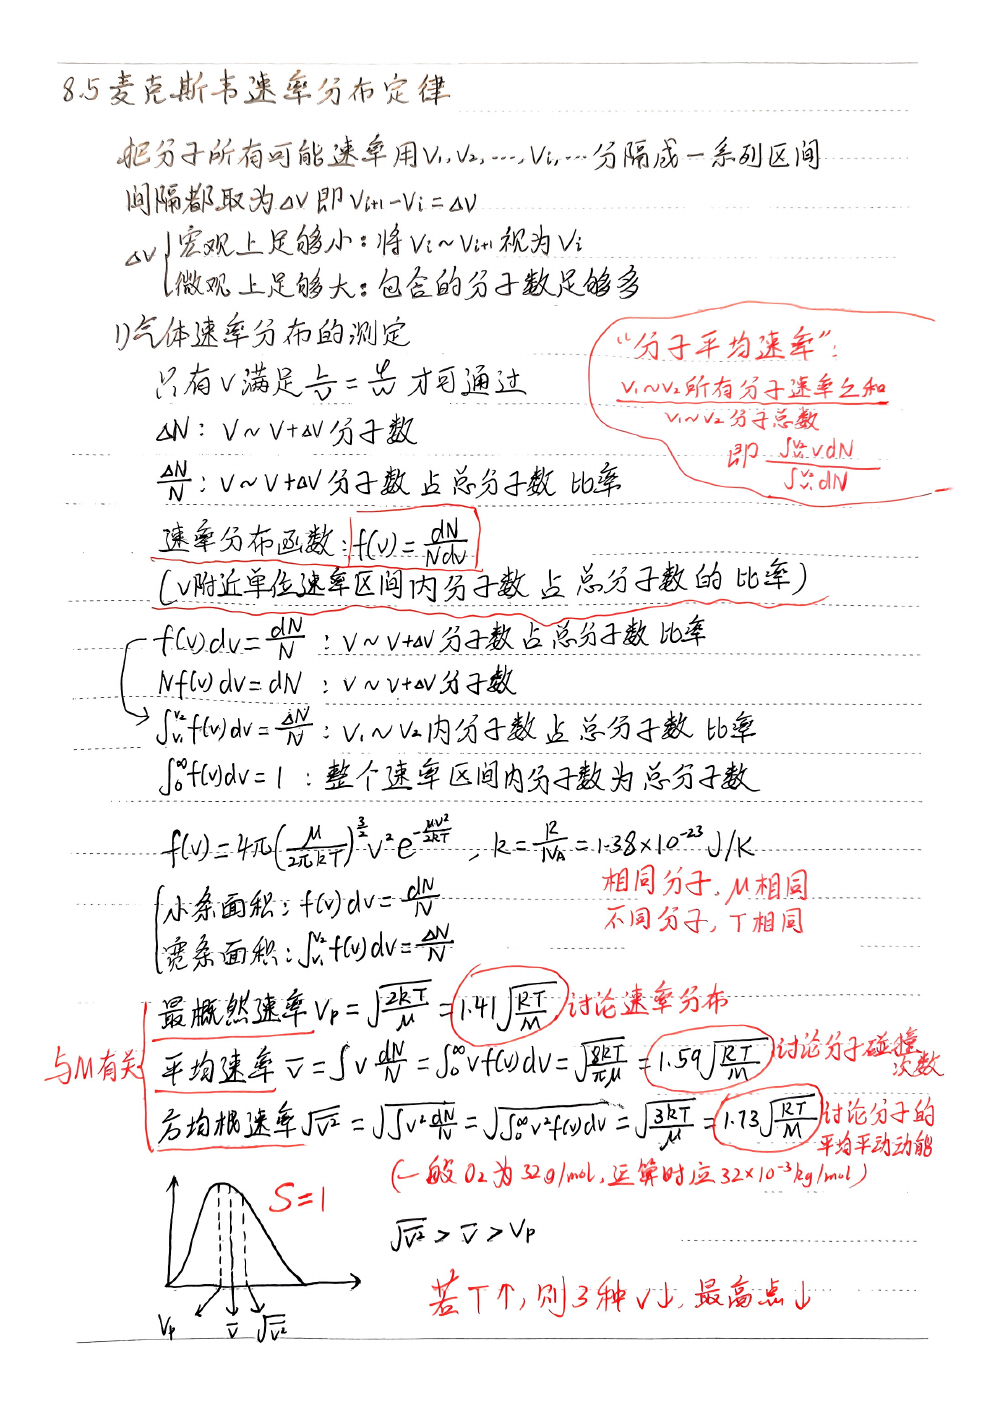 8.5 麦克斯韦速率分布定律
把分子所有可能速率用 v₁, v₂, …, vᵢ, … 分隔成一系列区间
间隔都取为 Δv 即 vᵢ₊₁ - vᵢ = Δv
Δv { 宏观上足够小：将 vᵢ ~ vᵢ₊₁ 视为 vᵢ
微观上足够大：包含的分子数足够多
1) 气体速率分布的测定
"分子平均速率"：
只有 v 满足 L/v = φ/ω 才可通过
v₁~v₂ 所有分子速率之和
v₁~v₂ 分子总数
ΔN：v ~ v+Δv 分子数
即 ∫v₁^v₂ vdN / ∫v₁^v₂ dN
ΔN/N：v ~ v+Δv 分子数占总分子数比率
速率分布函数：f(v) = dN/Ndv
(v附近单位速率区间内分子数占总分子数的比率)
f(v)dv = dN/N：v ~ v+Δv 分子数占总分子数比率
Nf(v)dv = dN：v ~ v+Δv 分子数
∫v₁^v₂ f(v)dv = ΔN/N：v₁ ~ v₂ 内分子数占总分子数比率
∫₀^∞ f(v)dv = 1：整个速率区间内分子数为总分子数
f(v) = 4π(μ/2πkT)^(3/2) v² e^(-μv²/2kT), k = R/N_A = 1.38×10⁻²³ J/K
相同分子, μ相同
小条面积：f(v)dv = dN/N
不同分子, T相同
宽条面积：∫v₁^v₂ f(v)dv = ΔN/N
最概然速率 vₚ = √(2kT/μ) = 1.41√(RT/M) 讨论速率分布
与M有关 平均速率 v̄ = ∫v dN/N = ∫₀^∞ vf(v)dv = √(8kT/πμ) = 1.59√(RT/M) 讨论分子碰撞次数
方均根速率 √v̄² = √(∫v² dN/N) = √(∫₀^∞ v²f(v)dv) = √(3kT/μ) = 1.73√(RT/M) 讨论分子的
平均平动动能
(一般 O₂ 为 32g/mol, 运算时应 32×10⁻³kg/mol)
S=1
√v̄² > v̄ > vₚ
若 T↑, 则 3 种 v↓, 最高点↓
vₚ v̄ √v̄²